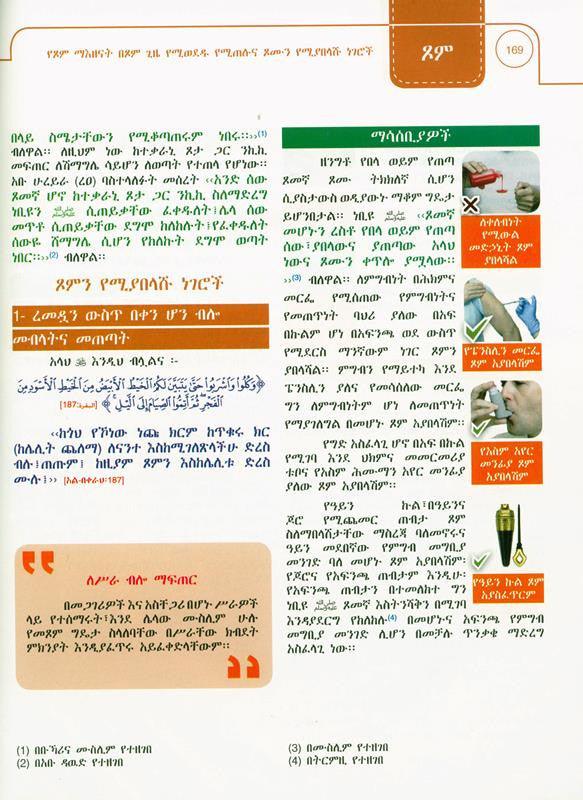 የጾም ማእዘናት በጾም ጊዜ የሚወደዱ የሚጠሉና ጾሙን የሚያበላሹ ነገሮች
ጾም
169
በላይ ስሜታቸውን የሚቆጣጠሩም ነበሩ፡፡››(1)
ብለዋል፡፡ ለዚህም ነው ከተቃራኒ ጾታ ጋር ንኪኪ
መፍጠር ለሽማግሌ ሳይሆን ለወጣት የተጠላ የሆነው፡፡
አቡ ሁረይራ (ረዐ) ባስተላለፉት መሰረት ‹‹አንድ ሰው
ጾመኛ ሆኖ ከተቃራኒ ጾታ ጋር ንኪኪ ስለማድረግ
ነቢዩን ﷺ ሲጠይቃቸው ፈቀዱለት፤ሌላ ሰው
መጥቶ ሲጠይቃቸው ደግሞ ከለከሉት፤የፈቀዱለት
ሰውዬ ሽማግሌ ሲሆን የከለከሉት ደግሞ ወጣት
ነበር፡፡››(2) ብለዋል፡፡
ጾምን የሚያበላሹ ነገሮች
1- ረመዷን ውስጥ በቀን ሆን ብሎ
መብላትና መጠጣት
አላህ ﷻ እንዲህ ብሏልና ፡-
﴿وَكُلُوا وَاشْرَبُوا حَتَّىٰ يَتَبَيَّنَ لَكُمُ الْخَيْطُ الْأَبْيَضُ مِنَ الْخَيْطِ الْأَسْوَدِ مِنَ
الْفَجْرِ ۖ ثُمَّ أَتِمُّوا الصِّيَامَ إِلَى اللَّيْلِ﴾ [البقرة:187]
‹‹ከጎህ የኾነው ነጩ ክርም ከጥቁሩ ክር
(ከሌሊት ጨለማ) ለናንተ እስከሚገለጽላችሁ ድረስ
ብሉ፤ጠጡም፤ ከዚያም ጾምን እስከሌሊቱ ድረስ
ሙሉ፤›› [አል-በቀራህ:187]
ለሥራ ብሎ ማፍጠር
በመጋገሪዎች እና አስቸጋሪ በሆኑ ሥራዎች
ላይ የተሰማሩት፤እንደ ሌላው ሙስሊም ሁሉ
የመጾም ግዴታ ስላለባቸው በሥራቸው ክብደት
ምክንያት እንዲያፈጥሩ አይፈቀድላቸውም፡፡
ማሳሰቢያዎች
ዘንግቶ የበላ ወይም የጠጣ
ጾመኛ ጾሙ ትክክለኛ ሲሆን
ሲያስታውስ ወዲያውኑ ማቆም ግዴታ
ይሆንበታል፡፡ ነቢዩ ﷺ ‹‹ጾመኛ
መሆኑን ረስቶ የበላ ወይም የጠጣ
ሰው፤ያበላውና ያጠጣው አላህ
ነውና ጾሙን ቀጥሎ ያሟላው፡፡
››(3) ብለዋል፡፡ ለምግብነት በሕክምና
መርፌ የሚሰጠው የምግብነትና
የመጠጥነት ባህሪ ያለው በአፍ
በኩልም ሆነ በአፍንጫ ወደ ውስጥ
የሚደርስ ማንኛውም ነገር ጾምን
ያበላሻል፡፡ ምግብን የማይተካ እንደ
ፔንስሊን ያለና የመሳሰለው መርፌ
ግን ለምግብነትም ሆነ ለመጠጥነት
የማያገለግል በመሆኑ ጾም አያበላሽም፡፡
የግድ አስፈላጊ ሆኖ በአፍ በኩል
የሚገባ እንደ ህክምና መመርመሪያ
ቱቦና የአስም ሕሙማን አየር መንፊያ
ያለው ጾም አያበላሽም፡፡
የዓይን ኩል፤በዓይንና
ጆሮ የሚጨመር ጠብታ ጾም
ስለማበላሽታቸው ማስረጃ ባለመኖሩና
ዓይን መደበኛው የምግብ መግቢያ
መንገድ ባለ መሆኑ ጾም አያበላሽም፡፡
የጆሮና የአፍንጫ ጠብታም እንዲሁ፡፡
የአፍንጫ ጠብታን በተመለከተ ግን
ነቢዩ ﷺ ጾመኛ አስተንሻቅን በሚገባ
እንዳያደርግ የከለከሉ(4) በመሆኑና አፍንጫ የምግብ
መግቢያ መንገድ ሊሆን በመቻሉ ጥንቃቄ ማድረግ
አስፈላጊ ነው፡፡
ለቀለብነት
የሚውል
መድኃኒት ጾም
ያበላሻል
የፔንስሊን መርፌ
ጾም አያበላሽም
የአስም አየር
መንፊያ ጾም
አያበላሽም
የዓይን ኩል ጾም
አያስፈጥርም
(1) በቡኻሪና ሙስሊም የተዘገበ
(2) በአቡ ዳዉድ የተዘገበ
(3) በሙስሊም የተዘገበ
(4) በትርምዚ የተዘገበ